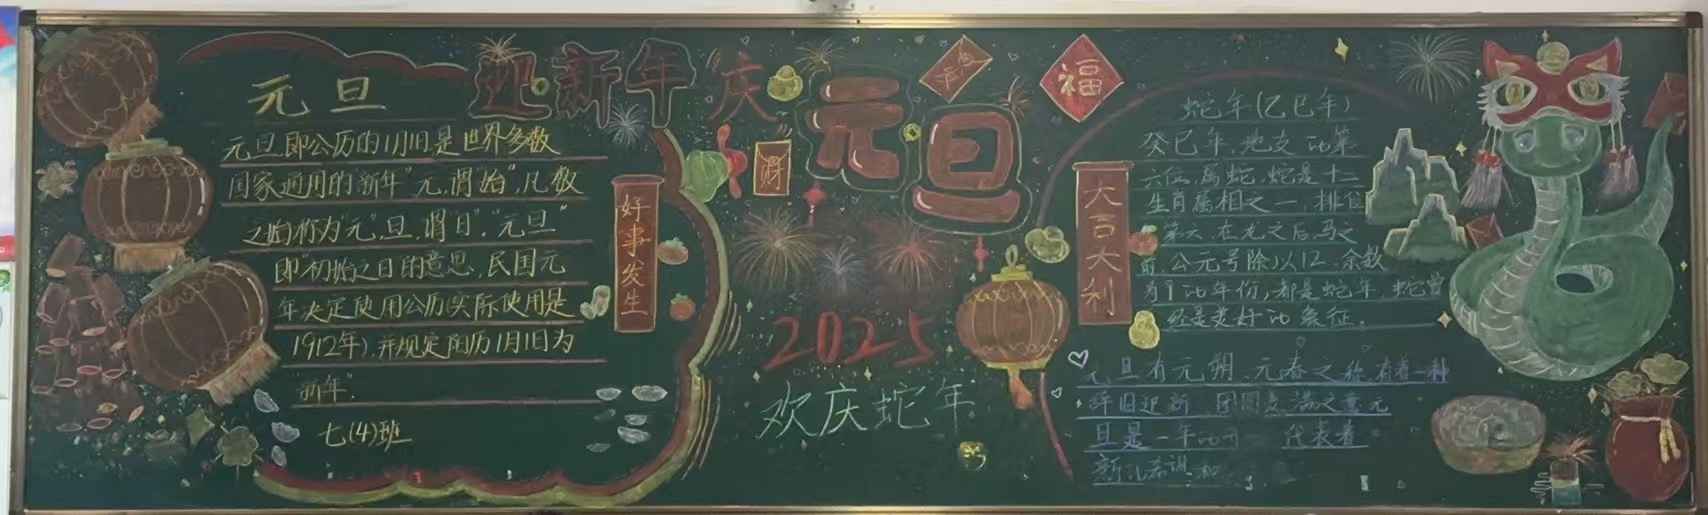 迎新年 庆
元旦
福
元旦
元旦即公历的1月1日是世界多数
国家通用的"新年"元,谓"始",凡数
之始称为"元",旦,谓"日"."元旦"
即"初始之日"的意思.民国元
年决定使用公历(实际使用是
1912年),并规定阳历1月1日为
"新年".
七(4)班
好事发生
财
2025
欢庆蛇年
大吉大利
蛇年(乙巳年)
癸巳年,地支的第
六位,属蛇.蛇是十二
生肖属相之一,排位
第六,在龙之后,马之
前.公元号除以12,余数
为9的年份,都是蛇年,蛇曾
经是美好的象征.
元旦有元朔、元春之称,有着一种
辞旧迎新、团圆美满之意元
旦是一年的 代表着
新